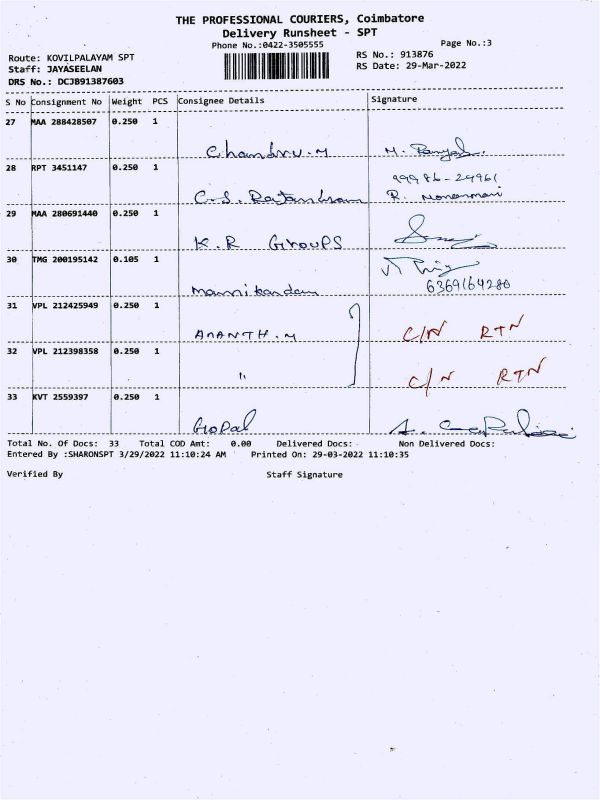 THE PROFESSIONAL COURIERS, Coimbatore
Delivery Runsheet - SPT
Phone No.:0422-3505555
Page No.:3
Route: KOVILPALAYAM SPT
RS No.: 913876
Staff: JAYASEELAN
RS Date: 29-Mar-2022
DRS No.: DCJB91387603
S No Consignment No Weight PCS Consignee Details Signature
27 MAA 288428507 0.250 1
Chandru.M M.
28 RPT 3451147 0.250 1
99986-29961
C.S. R.
29 MAA 280691440 0.250 1
K.R GROUPS
30 TMG 200195142 0.105 1
Mannikandan 6369164280
31 VPL 212425949 0.250 1
ANANTH.M C/N RTN
32 VPL 212398358 0.250 1
" C/N RTN
33 KVT 2559397 0.250 1
Gopal
Total No. Of Docs: 33 Total COD Amt: 0.00 Delivered Docs: Non Delivered Docs:
Entered By :SHARONSPT 3/29/2022 11:10:24 AM Printed On: 29-03-2022 11:10:35
Verified By Staff Signature